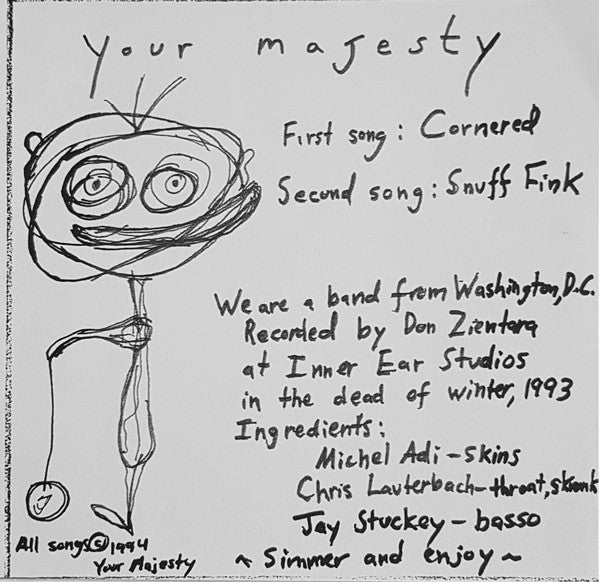 your majesty
First song: Cornered
Second song: Snuff Fink
We are a band from Washington, D.C.
Recorded by Don Zientara
at Inner Ear Studios
in the dead of winter, 1993
Ingredients:
Michel Adi – skins
Chris Lauterbach – throat, skronk
Jay Stuckey – basso
~ Simmer and enjoy ~
All songs © 1994
Your Majesty